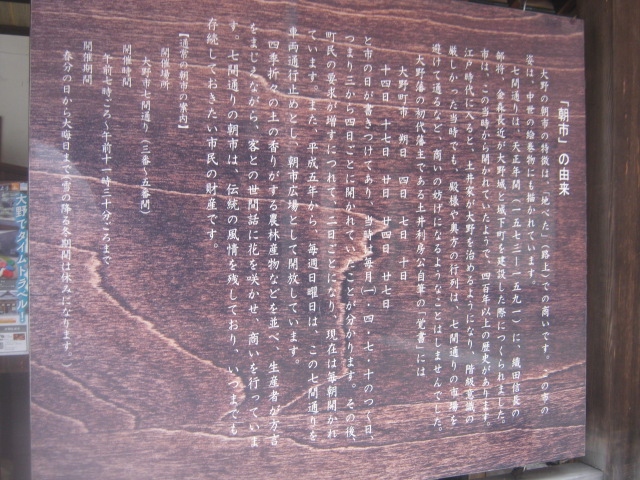 「朝市」の由来
大野の朝市の特徴は、「地べた」(路上)での商いです。この市の
姿は、中世の絵巻物にも描かれています。
七間通りは、天正年間(一五七三～一五九一)に、織田信長の
部将、金森長近が大野城と城下町を建設した際につくられました。
市は、この当時から開かれていたようで、四百年以上の歴史があります。
江戸時代に入ると、土井家が大野を治めるようになり、階級意識の
厳しかった当時でも、殿様や奥方の行列は、七間通りの市場を
避けて通るなど、商いの妨げになるようなことはしませんでした。
大野藩の初代藩主である土井利房公自筆の「覚書」には
大野町市 朔日 四日 七日 十日
十四日 十七日 廿日 廿四日 廿七日
と市の日が書きつけてあり、当時は毎月(一・四・七・十のつく日、
つまり三から四日ごとに開かれていたことが分かります。その後、
町民の要求が増すにつれて、二日ごとになり、現在は毎朝開かれ
ています。また、平成五年から、毎週日曜日は、この七間通りを
車両通行止めとし、朝市広場として開放しています。
四季折々の土の香りがする農林産物などを並べ、生産者が方言
をまじえながら、客との世間話に花を咲かせ、商いを行っていま
す。七間通りの朝市は、伝統の風情を残しており、いつまでも
存続しておきたい市民の財産です。
【通常の朝市の案内】
開催場所
大野市七間通り(三番～五番間)
開催時間
午前七時ごろ～午前十一時三十分ごろまで
開催期間
春分の日から大晦日まで(雪の降る冬期間は休みになります。)
大野でタイムトラベル!